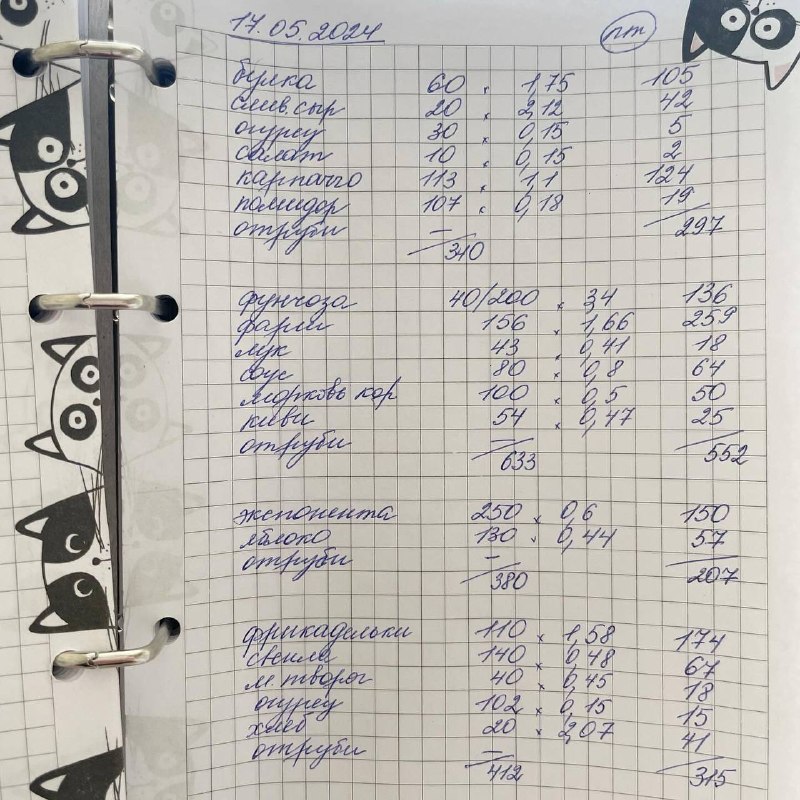 17.05.2024 пт
булка 60 × 1,75 105
слив. сыр 20 × 2,12 42
огурец 30 × 0,15 5
салат 10 × 0,15 2
карпаччо 113 × 1,1 124
помидор 107 × 0,18 19
отруби — 297
340
фунчоза 40/200 × 34 136
фарш 156 × 1,66 259
лук 43 × 0,41 18
соус 80 × 0,8 64
морковь кор 100 × 0,5 50
киви 54 × 0,47 25
отруби — 552
633
экспонента 250 × 0,6 150
яблоко 130 × 0,44 57
отруби — 207
380
фрикадельки 110 × 1,58 174
свекла 140 × 0,48 67
м. творог 40 × 0,45 18
огурец 102 × 0,15 15
хлеб 20 × 2,07 41
отруби —
412 315